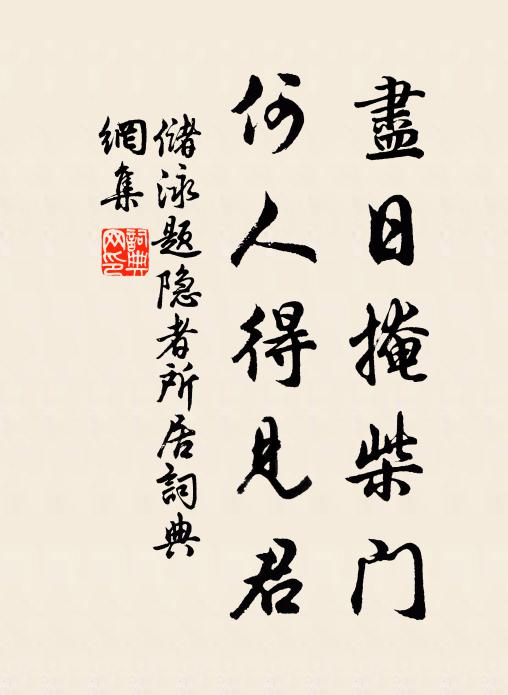 盡日掩柴门
何人得見君
储泳题隐者所居詞典
網集
詞典网印